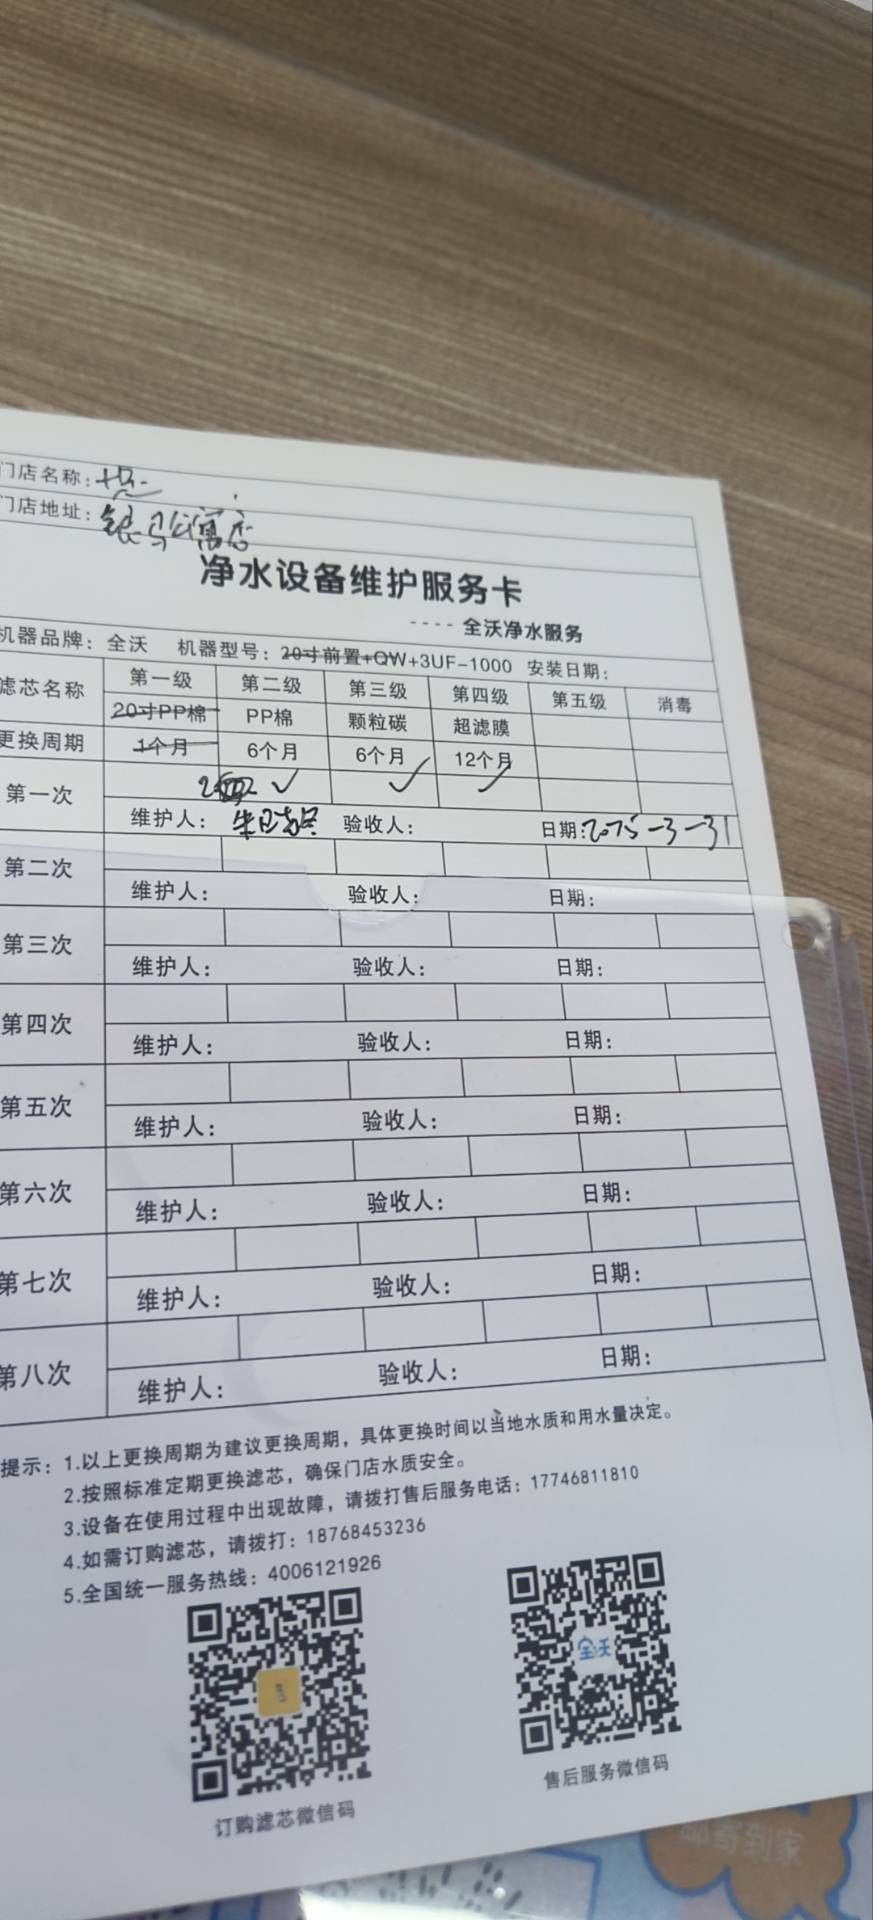 门店名称：
门店地址：银马公寓店
净水设备维护服务卡
----全沃净水服务
机器品牌：全沃 机器型号：20寸前置+QW+3UF-1000 安装日期：
滤芯名称 第一级 第二级 第三级 第四级 第五级 消毒
20寸PP棉 PP棉 颗粒碳 超滤膜
更换周期 1个月 6个月 6个月 12个月
第一次 ✓ ✓ ✓
维护人： 验收人： 日期：2025-3-31
第二次
维护人： 验收人： 日期：
第三次
维护人： 验收人： 日期：
第四次
维护人： 验收人： 日期：
第五次
维护人： 验收人： 日期：
第六次
维护人： 验收人： 日期：
第七次
维护人： 验收人： 日期：
第八次
维护人： 验收人： 日期：
提示：1.以上更换周期为建议更换周期，具体更换时间以当地水质和用水量决定。
2.按照标准定期更换滤芯，确保门店水质安全。
3.设备在使用过程中出现故障，请拨打售后服务电话：17746811810
4.如需订购滤芯，请拨打：18768453236
5.全国统一服务热线：4006121926
全沃
订购滤芯微信码
售后服务微信码
邮寄到家